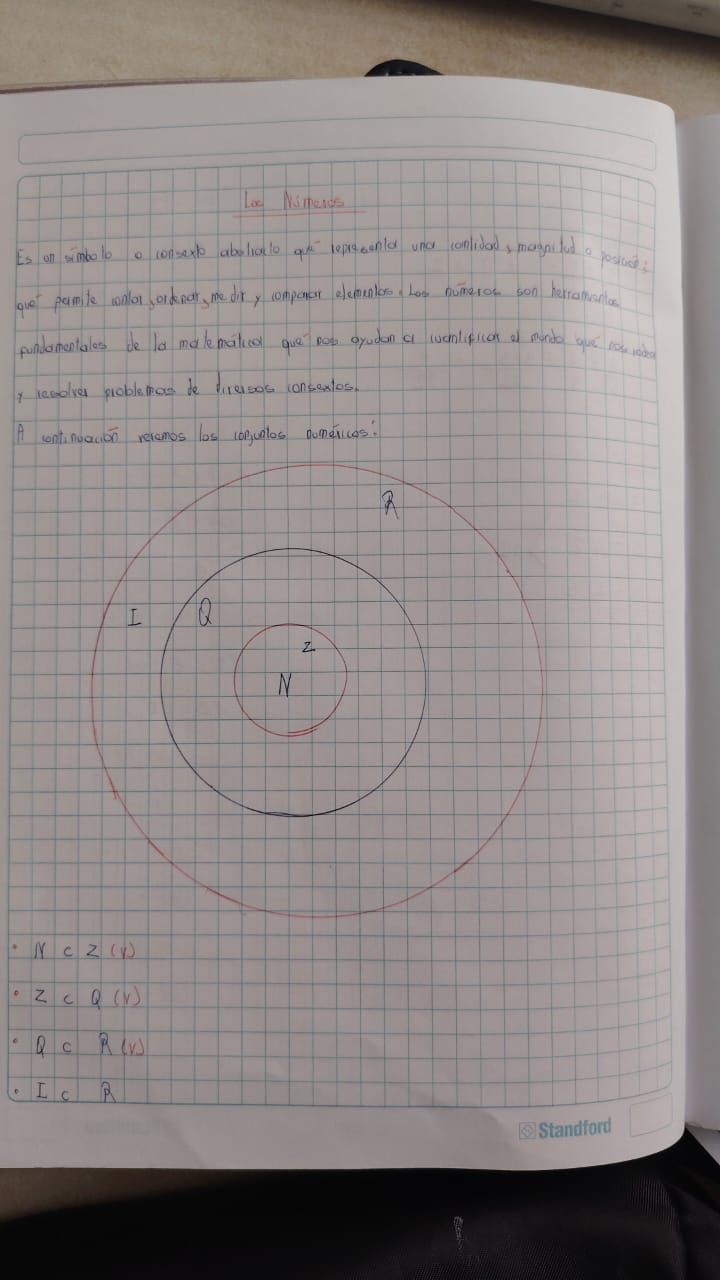 Los Números
Es un símbolo o consexto abstracto qué representa una cantidad, magnitud o posición;
qué permite contar, ordenar, medir y comparar elementos. Los números son herramientas
fundamentales de la matemática qué nos ayudan a cuantificar el mundo qué nos rodea
y resolver problemas de diversos consextos.
A continuación veremos los conjuntos numéricos:
R
I Q
Z
N
• N c Z (V)
• Z c Q (V)
• Q c R (V)
• I c R
Standford